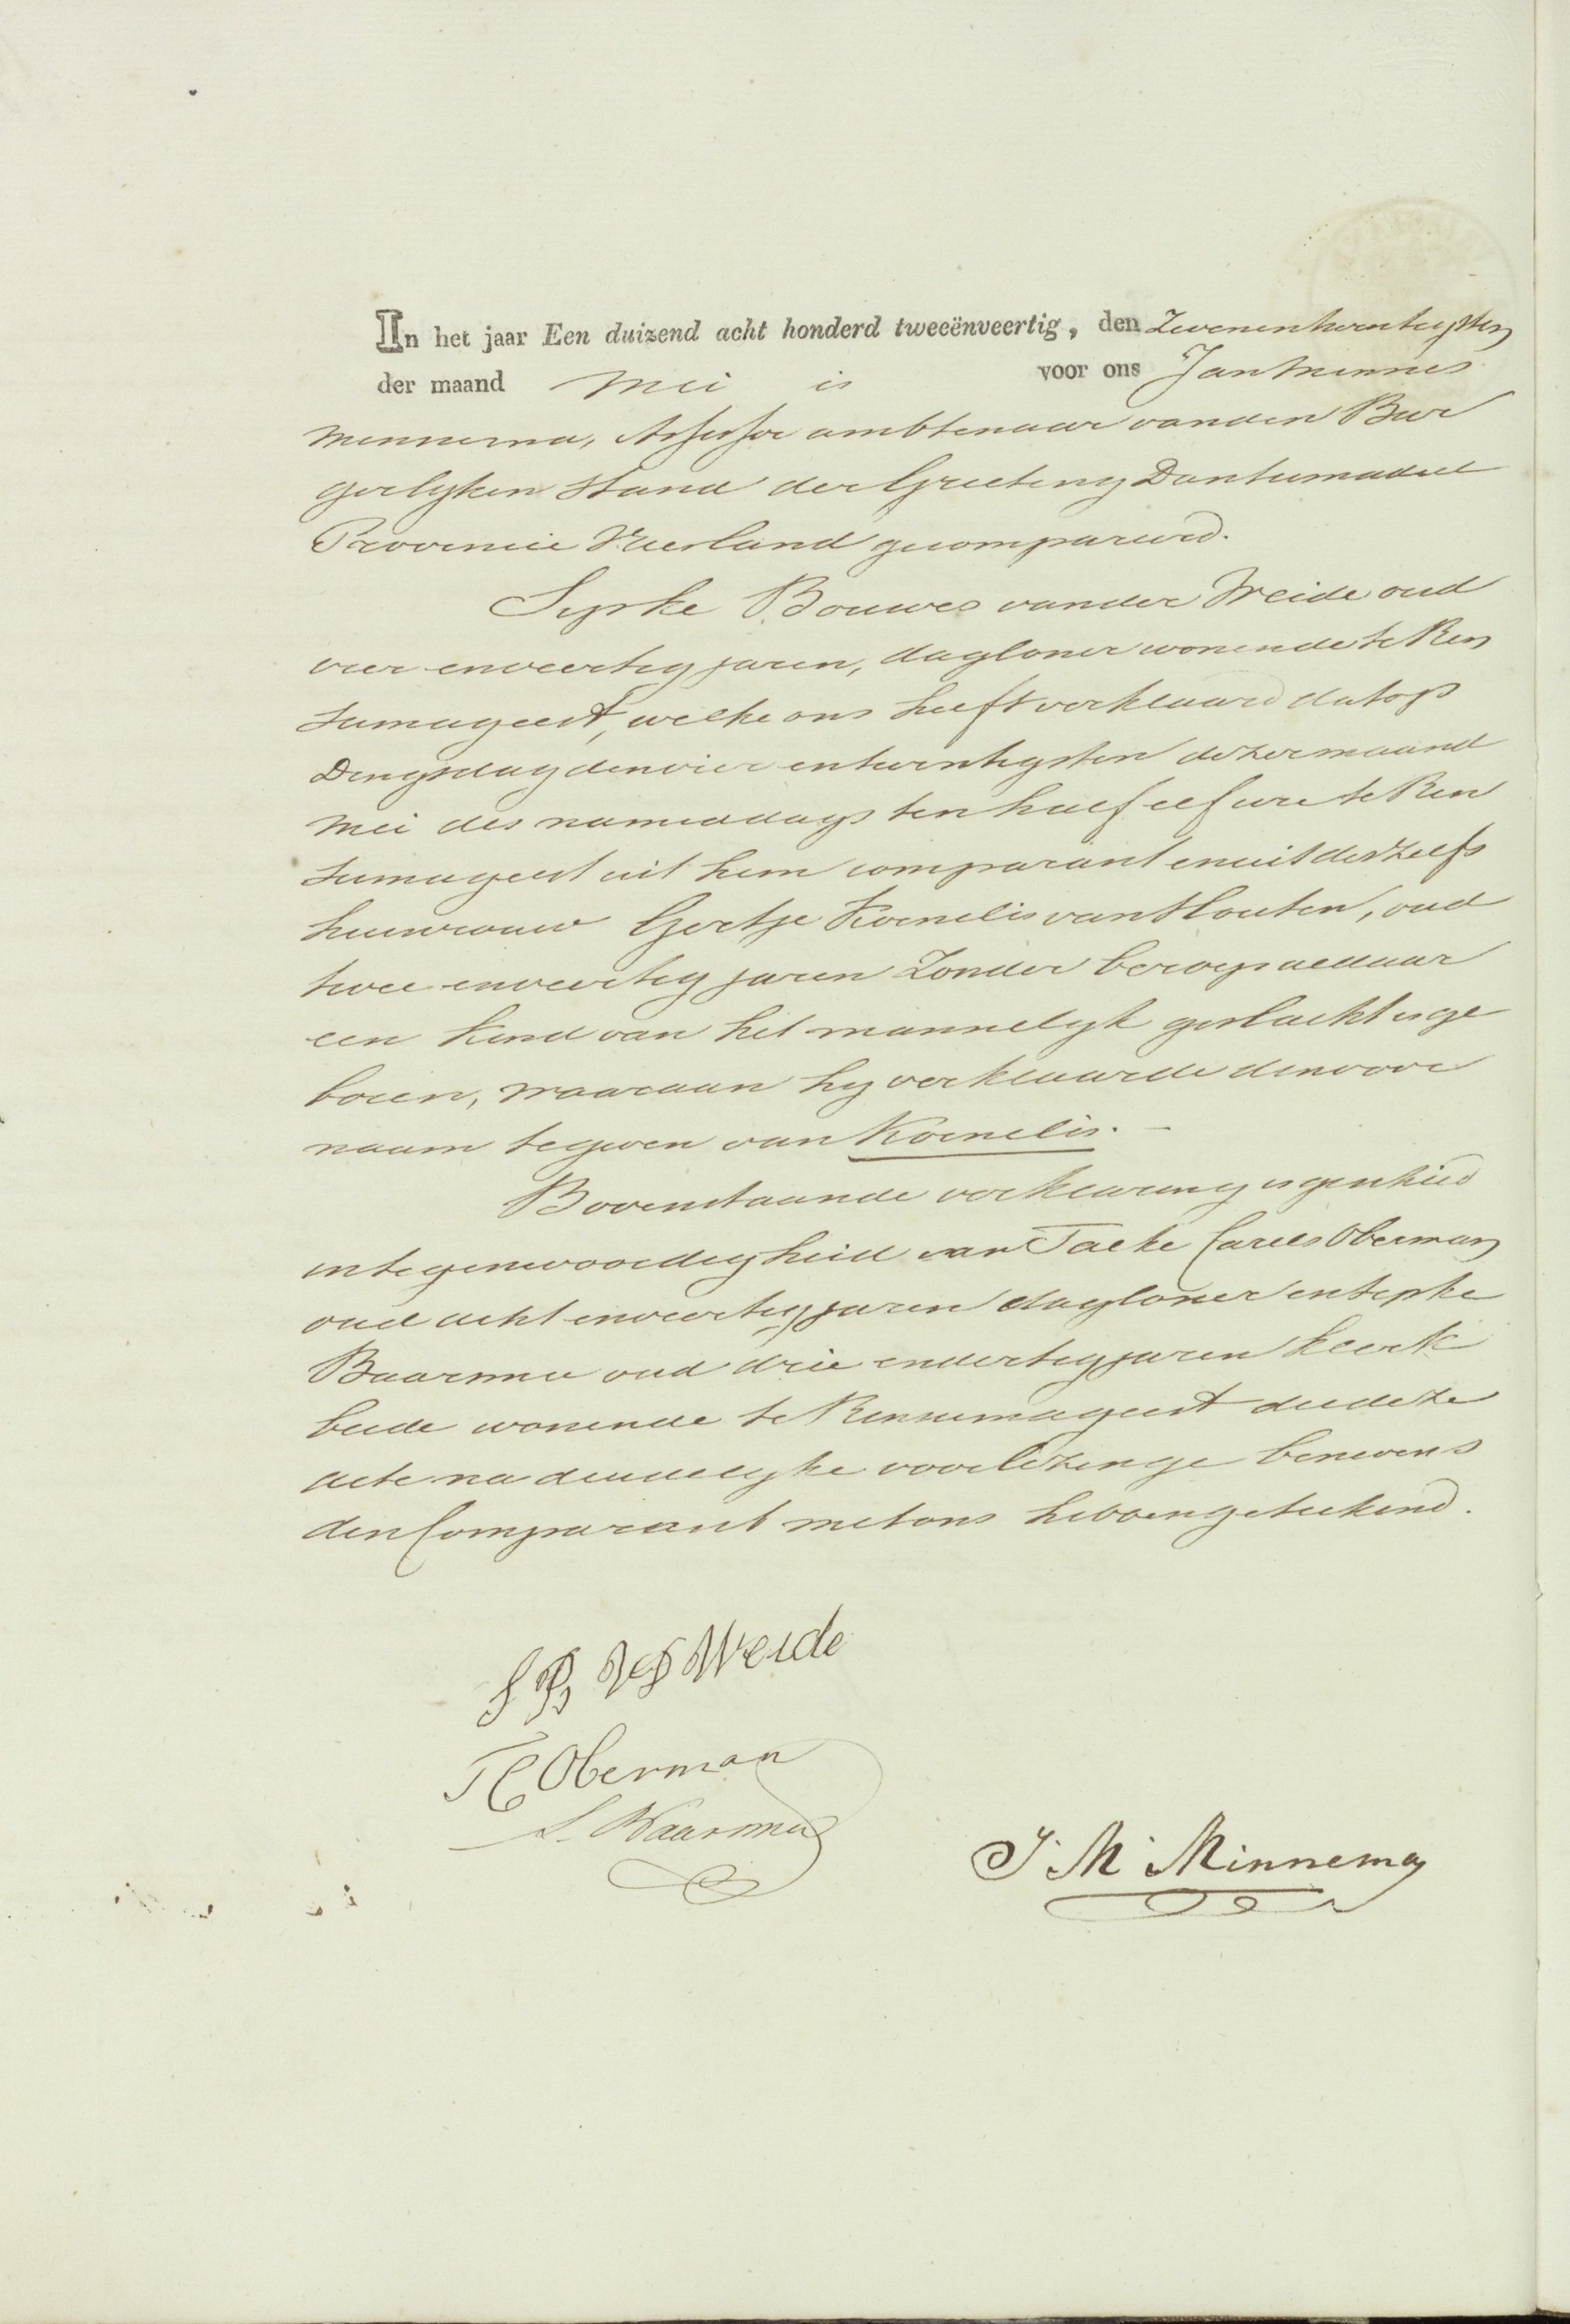 In het jaar Een duizend acht honderd tweeënveertig, den Zevenentwintigsten
der maand Mei is voor ons Jan Minnes
Minnema, Assessor ambtenaar van den Bur
gerlyken Stand der Grieteny Dantumadeel
Provincie Vriesland gecompareerd.
Sipke Bouwes van der Weide oud
vier en veertig jaren, dagloner wonende te Rin
sumageest, welke ons heeft verklaard dat op
Dingsdag den vier en twintigsten dezer maand
Mei des namiddags ten half elf ure te Rin
sumageest uit hem comparant en uit deszelfs
huisvrouw Gertje Kornelis van Houten, oud
twee en veertig jaren Zonder beroep aldaar
een kind van het mannelyk geslacht is ge
boren, waaraan hy verklaarde den voor
naam te geven van Kornelis.
Bovenstaande verklaring is geschied
in tegenwoordigheid van Taeke Carels Oberman
oud acht en veertig jaren dagloner en Sipke
Baarsma oud drie en dertig jaren klerk
beide wonende te Rinsumageest die deze
acte na duidelyke voorlezinge benevens
den Comparant met ons hebben geteekend.
S B VD Weide
T C Oberman
S. Baarsma
J. M. Minnema